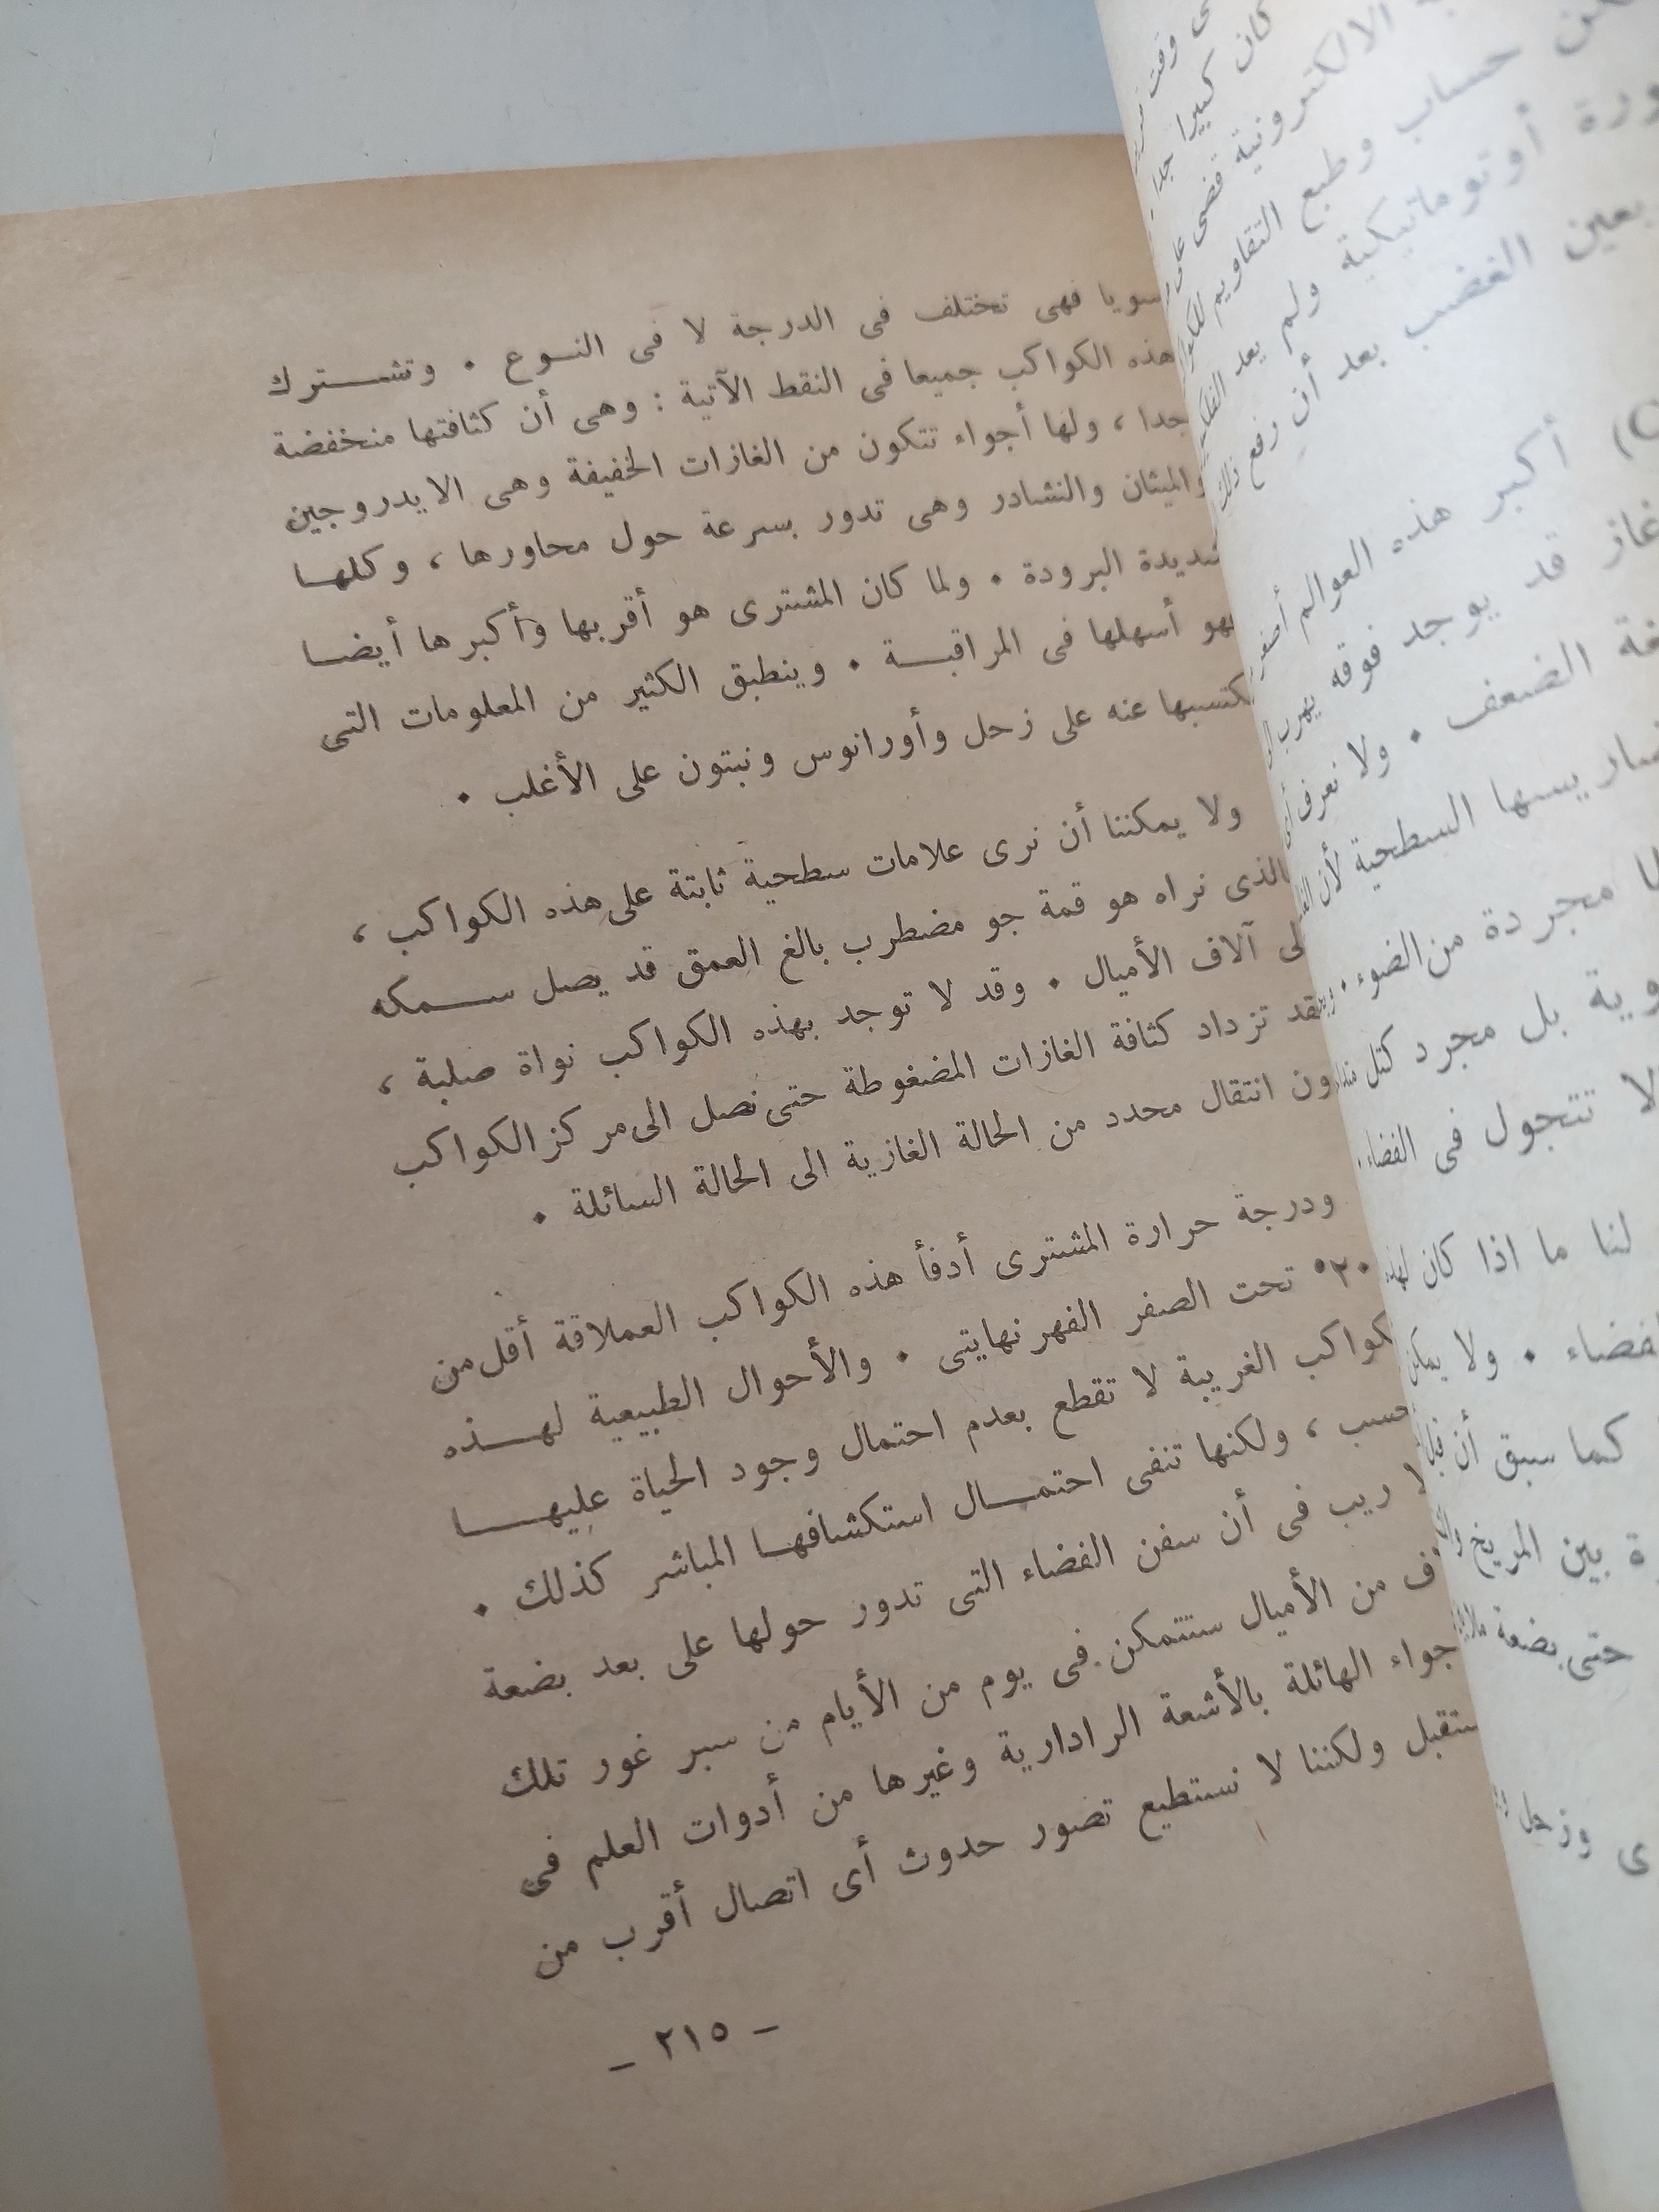 سويا فهى تختلف فى الدرجة لا فى النوع . وتشترك
هذه الكواكب جميعا فى النقط الآتية : وهى أن كثافتها منخفضة
جدا ، ولها أجواء تتكون من الغازات الخفيفة وهى الايدروجين
والميثان والنشادر وهى تدور بسرعة حول محاورها ، وكلها
شديدة البرودة . ولما كان المشترى هو أقربها وأكبرها أيضا
فهو أسهلها فى المراقبة . وينطبق الكثير من المعلومات التى
عنه على زحل وأورانوس ونبتون على الأغلب .
ولا يمكننا أن نرى علامات سطحية ثابتة على هذه الكواكب ،
الذى نراه هو قمة جو مضطرب بالغ العمق قد يصل سمكه
آلاف الأميال . وقد لا توجد بهذه الكواكب نواة صلبة ،
تزداد كثافة الغازات المضغوطة حتى نصل الى مركز الكواكب
انتقال محدد من الحالة الغازية الى الحالة السائلة .
ودرجة حرارة المشترى أدفأ هذه الكواكب العملاقة أقل من
تحت الصفر الفهرنهايتى . والأحوال الطبيعية لهذه
الغريبة لا تقطع بعدم احتمال وجود الحياة عليها
، ولكنها تنفى احتمال استكشافها المباشر كذلك .
ريب فى أن سفن الفضاء التى تدور حولها على بعد بضعة
من الأميال ستتمكن فى يوم من الأيام من سبر غور تلك
الهائلة بالأشعة الرادارية وغيرها من أدوات العلم فى
ولكننا لا نستطيع تصور حدوث أى اتصال أقرب من
- ٢١٥ -
كان كبيرا جدا
الالكترونية قضى على
حساب وطبع التقاويم
أوتوماتيكية ولم يعد
بعين الغضب بعد أن رفع
أكبر هذه العوالم
غاز قد يوجد فوقه يهرب
الضعف . ولا نعرف
السطحية لأن
مجردة من الضوء .
بل مجرد كتل
لا تتجول فى الفضاء .
لنا ما اذا كان
. ولا يمكن
كما سبق أن
بين المريخ
حتى بضعة
وزحل